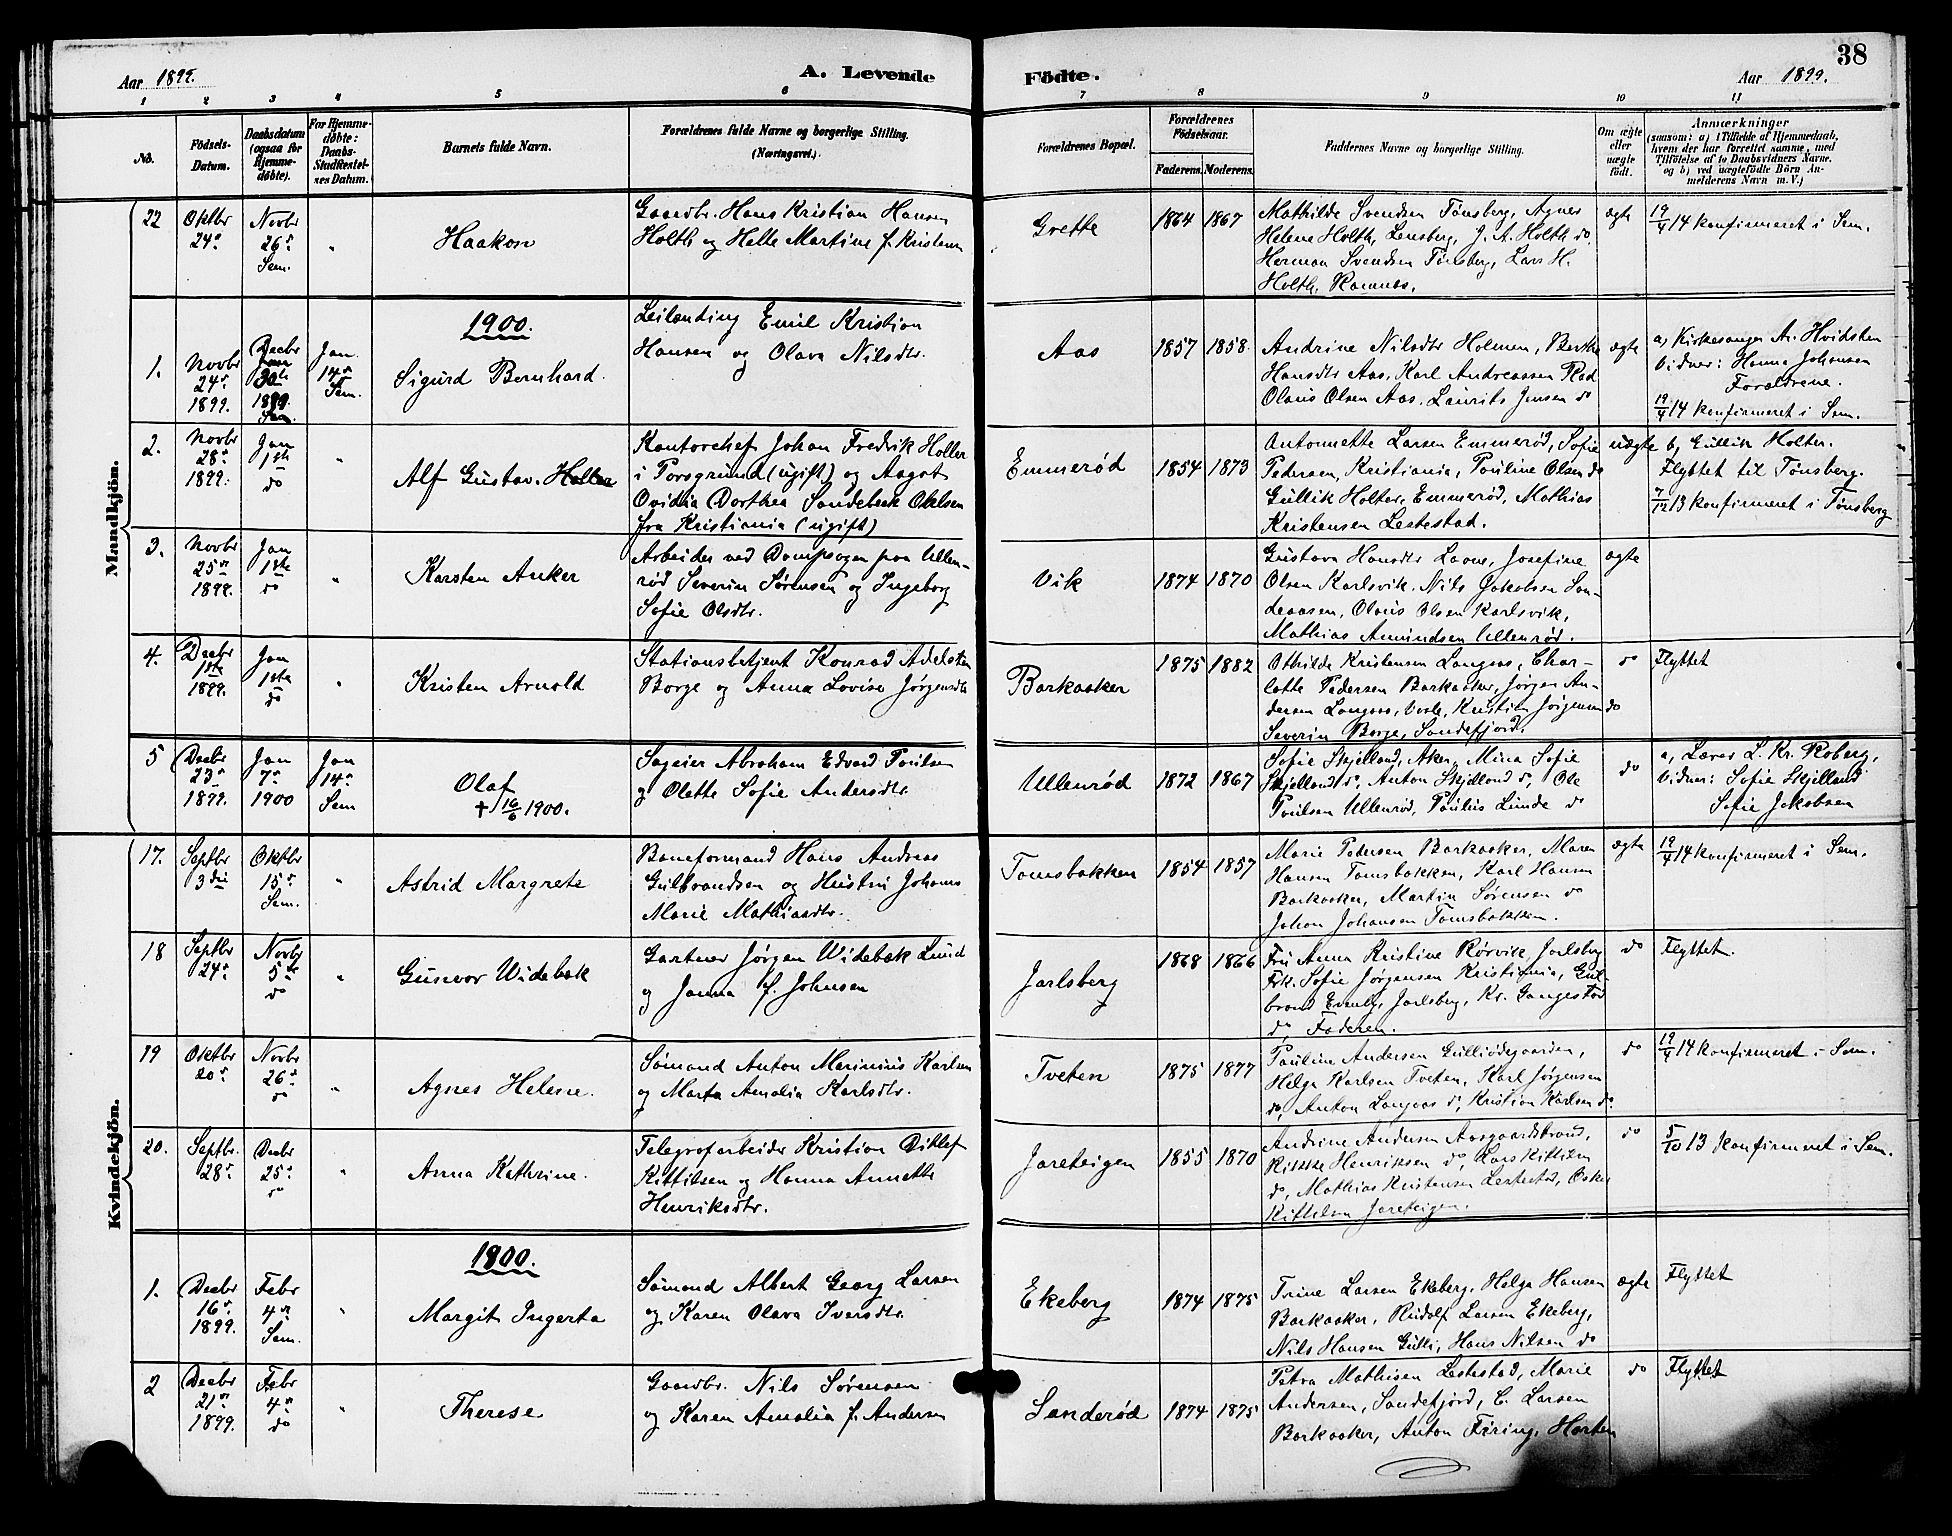 38
Aar 1899.
A. Levende Födte.
Aar 1899.
1 2 3 4 5 6 7 8 9 10 11
No.
Födsels-
Datum.
Daabsdatum
(ogsaa for
Hjemme-
døbte).
For Hjemme-
døbte:
Daabs-
Stadfæstel-
ses Datum.
Barnets fulde Navn.
Forældrenes fulde Navne og borgerlige Stilling.
(Næringsvei.)
Forældrenes Bopæl.
Forældrenes
Födselsaar.
Faderens. Moderens.
Faddernes Navne og borgerlige Stilling.
Om ægte
eller
uægte
født.
Anmærkninger
(saasom: a) i Tilfælde af Hjemmedaab,
hvem der har forrettet samme, med
Tilføielse af to Daabsvidners Navne,
og b) ved uægtefödte Börn An-
melderens Navn m.V.)
Mandkjön.
22
Oktbr
24de
Novbr
26de
Sem.
"
Haakon
Gaardbr. Hans Kristian Hansen
Holth og Helle Martine f. Kristensen
Grette
1864 1867
Mathilde Svendsen Tønsberg, Agnes
Helene Holth, Lensberg, J. A. Holth do
Herman Svendsen Tønsberg, Lars H.
Holth, Ramnes.
ægte
19/4 14 konfirmeret i Sem.
1900.
1.
Novbr
24de
1899.
Decbr
30te
1899.
Sem.
Jan.
14de
Sem.
Sigurd Bernhard.
Leilending Emil Kristian
Hansen og Olava Nilsdtr.
Aas
1857 1858.
Andrine Nilsdtr Holmen, Berthe
Hansdtr Aas, Karl Andreassen Rød
Olaus Olsen Aas. Laurits Jensen do
ægte
a, Kirkesanger A. Hvidsten
Vidner: Hanna Johansen
Forældrene.
19/4 14 konfirmeret i Sem.
2.
Novbr
28de
1899.
Jan
1ste
do
"
Alf Gustav. Holler
Kontorchef Johan Fredrik Holler
i Porsgrund (ugift) og Aagot
Ovidia Dorthea Sandebeck Olelsen
fra Kristiania (ugift)
Emmerød
1854 1873
Antonnette Larsen Emmerød, Sofie
Pedersen, Kristiania, Pouline Olsen do
Gullik Holter, Emmerød, Mathias
Kristensen Lestestad.
uægte
b, Gullik Holter.
Flyttet til Tønsberg.
7/12 13 konfirmeret i Tønsberg
3.
Novbr
25de
1899.
Jan
1ste
do
"
Karsten Anker
Arbeider ved Dampsagen paa Ullen-
rød Severin Sørensen og Ingeborg
Sofie Olsdtr.
Vik
1874 1870
Gustava Hansdtr Laane, Josefine
Olsen Karlsvik. Nils Jakobsen San-
deaasen, Olaus Olsen Karlsvik,
Mathias Amundsen Ullenrød.
ægte
4.
Decbr
1ste
1899.
Jan
1ste
do
"
Kristen Arnold
Stationsbetjent Konrad Adelsten
Borge og Anna Lovise Jørgensdtr
Barkaaker
1875 1882
Othilde Kristensen Langaas, Char-
lotte Pedersen Barkaaker, Jørgen An-
dersen Langaas, Kristian Jørgensen do
Severin Borge, Sandefjord.
do
Flyttet
5
Decbr
23de
1899.
Jan
7de
1900
Jan
14de
Sem
Olaf
† 16/6 1900.
Sageier Abraham Edvard Poulsen
og Olette Sofie Andersdtr.
Ullenrød
1872 1867
Sofie Skjelland, Aker, Mina Sofie
Skjelland do, Anton Skjelland do, Ole
Poulsen Ullenrød, Paulus Lunde do
do
a, Lærer L. Kr. Roberg,
Vidner: Sofie Skjelland
Sofie Jakobsen
Kvindekjön.
17.
Septbr
3die
Oktbr
15de
Sem.
"
Astrid Margrete
Baneformand Hans Andreas
Gulbrandsen og Hustru Johanne
Marie Mathiasdtr.
Tomsbakken
1854 1857
Marie Pedersen Barkaaker, Maren
Hansen Tomsbakken, Karl Hansen
Barkaaker, Martin Sørensen do
Johan Johansen Tomsbakken.
ægte
19/4 14 konfirmeret i Sem.
18
Septbr
24de
Novbr
5te
do
"
Gunvor Widebæk
Gartner Jørgen Widebæk Lund
og Janna f. Johnsen
Jarlsberg
1868 1866
Fru Anna Kristine Rørvik, Jarlsberg
Frk. Sofie Jørgensen Kristiania, Gul-
brand Evenby, Jarlsberg, Kr. Gangestad
do, Faderen.
do
Flyttet.
19
Oktbr
20de
Novbr
26de
do
"
Agnes Helene.
Sømand Anton Marinius Karlsen
og Marta Amalia Karlsdtr.
Tveten
1875 1877
Pauline Andersen Gulliødegaarden,
Helga Karlsen Tveten, Karl Jørgensen
do, Anton Langaas do, Kristian Karlsen do.
do
19/4 14 konfirmeret i Sem.
20.
Septbr.
28de
Decbr
25de
do
"
Anna Kathrine.
Telegrafarbeider Kristian Ditlef
Kittilsen og Hanna Annette
Henriksdtr.
Jareteigen
1855 1870
Andrine Andersen Aasgaardstrand,
Henriksen do, Lars Kittilsen
do, Mathias Kristensen Lestestad, Oskar
Kittelsen Jareteigen.
do
5/10 13 konfirmeret i Sem.
1800.
1.
Decbr
16de
1899.
Febr
4de
Sem.
"
Margit Ingerta
Sømand Albert Georg Larsen
og Karen Olava Iversdtr.
Ekeberg
1874 1875
Trine Larsen Ekeberg, Helga Hansen
Barkaaker, Rudolf Larsen Ekeberg,
Nils Hansen Gulli, Hans Nilsen do
ægte
Flyttet
2
Decbr
21de
1899.
Febr
4de
do
"
Therese
Gaardbr. Nils Sørensen
og Karen Amalia f. Andersen
Sanderød
1874 1875
Petra Mathisen Lestestad, Marie
Andersen, Sandefjord, C. Larsen
Barkaaker, Anton Firing, Horten
do
Flyttet